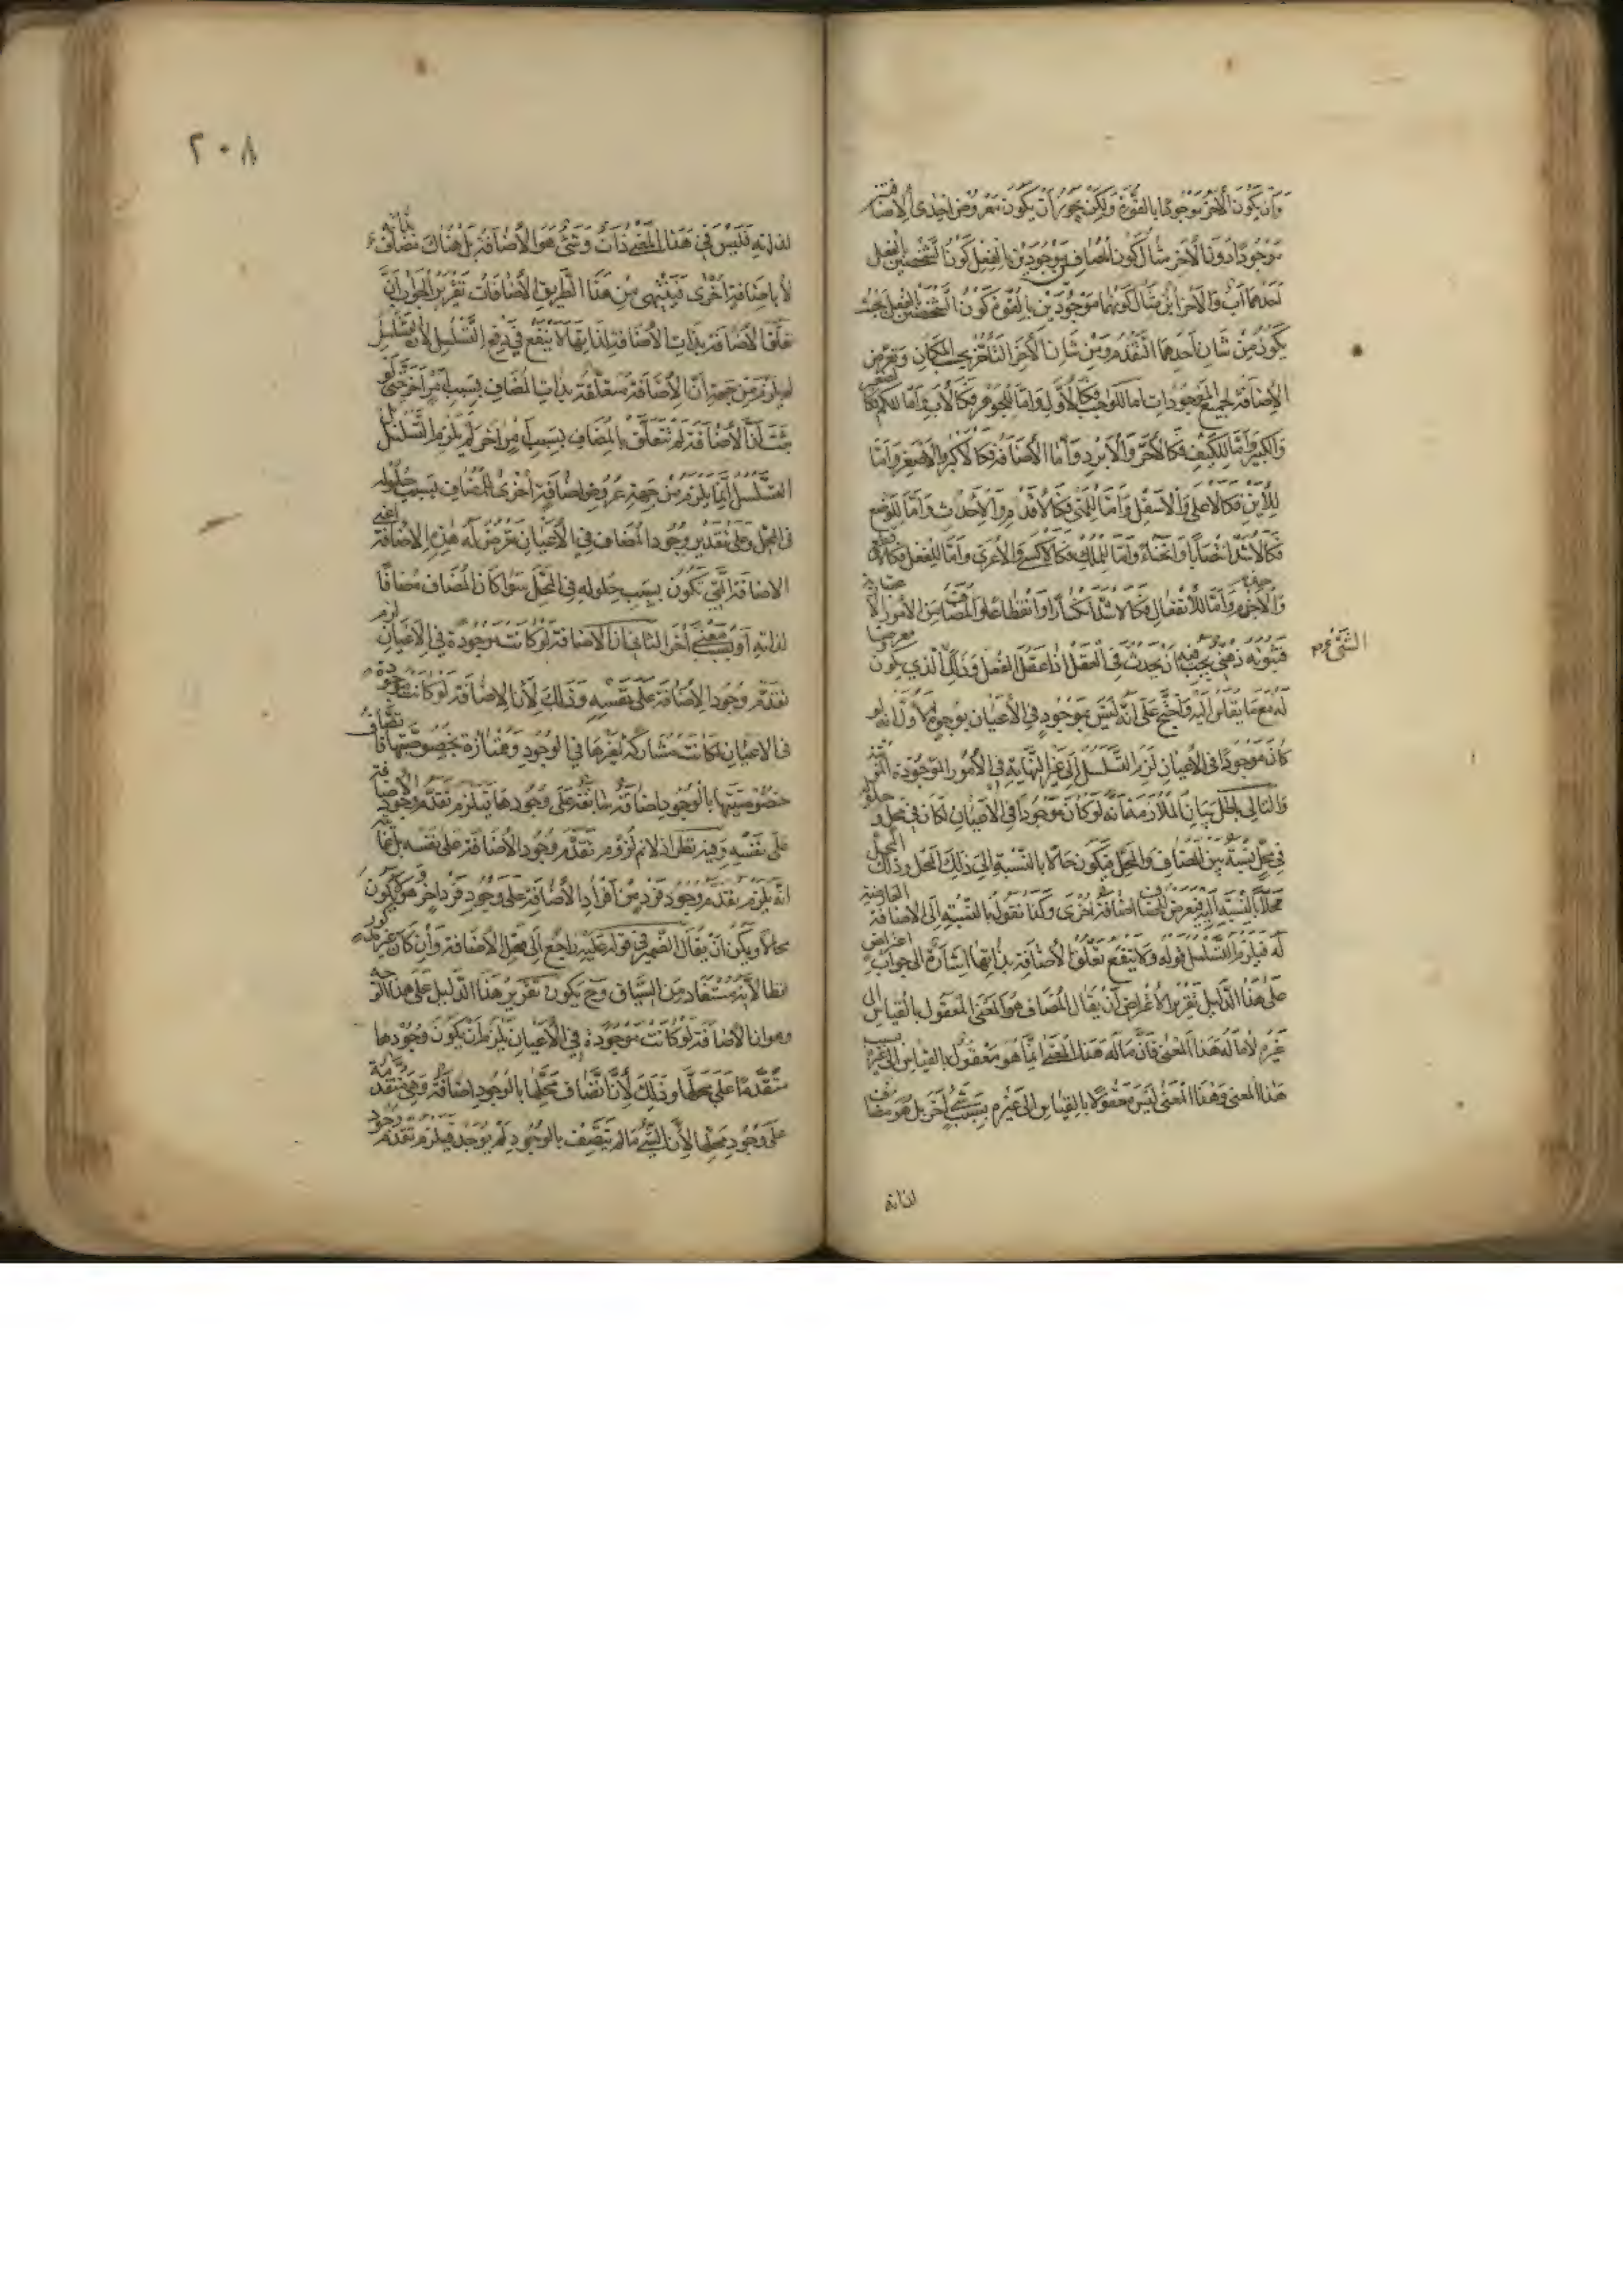 وان يكون الآخر موجودا بالقوة ولكن يجوز ان يكون معروض احدى الاضافتين
موجودا دون الآخر مثال كون المضافين موجودين بالفعل كون الشخصين بالفعل
احدهما اب والآخر ابن مثال كونهما موجودين بالقوة كون الشخصين بالفعل بحيث
يكون من شان احدهما التقدم ومن شان الآخر التاخر بحسب المكان وتعرض
الاضافة لجميع الموجودات اما للواجب فكالاول واما للجوهر فكالاب واما للكم فكالصغير
والكبير واما للكيف فكالاحر والابرد واما الاضافة فكالاكبر والاصغر واما
للاين فكالاعلى والاسفل واما للمتى فكالاقدم والاحدث واما للوضع
فكالاشد انتصابا وانحناء واما للملك فكالاكسى والاعرى واما للفعل فكالاقطع
والاجزم واما للانفعال فكالاشد تسخنا وانقطاعا والمضاف من الامور
فثبوته ذهني يجب فيه ان يحدث في العقل اذا عقل العقل وذلك الذي يكون
الشيء
له مع ما يقاس اليه واحتج على انه ليس بموجود في الاعيان بوجوه الاول انه لو
كان موجودا في الاعيان لزم التسلسل الى غير النهاية في الامور الموجودة المترتبة
والتالي باطل بيان الملازمة انه لو كان موجودا في الاعيان لكان في محل وحلوله
في محل نسبة بين المضاف والمحل فيكون حالا بالنسبة الى ذلك المحل وذلك المحل
محلا بالنسبة اليه فيعرض للمضاف اضافة اخرى وكذا نقول بالنسبة الى الاضافة العارضة
له فيلزم التسلسل قوله ولا ينفع تعلق الاضافة بذاتها اشارة الى جواب اعتراض
على هذا الدليل تقرير الاعتراض ان يقال المضاف هو المعنى المعقول بالقياس الى
غيره لا ما له هذا المعنى فان ما له هذا المعنى انما هو معقول بالقياس الى غيره بسبب
هذا المعنى وهذا المعنى ليس معقولا بالقياس الى غيره بسبب شيء آخر بل هو مضاف
لذاته
٢٠٨
لذاته فليس في هذا المعنى ذات وشيء هو الاضافة بل هناك مضاف بذاته
لا باضافة اخرى فينتهي من هذا الطريق الاضافات تقرير الجواب ان
تعلق الاضافة بذات الاضافة لذاتها لا ينفع في دفع التسلسل لان التسلسل
لم يلزم من جهة ان الاضافة متعلقة بذات المضاف بسبب امر آخر حتى لو
ثبت ان الاضافة لم تتعلق بالمضاف بسبب امر آخر لم يلزم التسلسل بل
التسلسل انما يلزم من جهة عروض اضافة اخرى للمضاف بسبب حلوله
في المحل وعلى تقدير وجود المضاف في الاعيان تعرض له هذه الاضافة اعني
الاضافة التي تكون بسبب حلوله في المحل سواء كان المضاف مضافا
لذاته او بسبب معنى آخر الثاني ان الاضافة لو كانت موجودة في الاعيان لزم
تقدم وجود الاضافة على نفسه وذلك لان الاضافة لو كانت موجودة
في الاعيان لكانت مشاركة لغيرها في الوجود وممتازة بخصوصيتها فاتصاف
خصوصيتها بالوجود اضافة سابقة على وجودها فيلزم تقدم وجود الاضافة
على نفسه وفيه نظر اذ لا نم لزوم تقدم وجود الاضافة على نفسه بل غايته
انه يلزم تقدم وجود فرد من افراد الاضافة على وجود فرد آخر هو
محلا ويمكن ان يقال الضمير في قوله عليه راجع الى محل الاضافة وان كان غير مذكور
لفظا لانه مستفاد من السياق وح يكون تقرير هذا الدليل على هذا الوجه
وهو ان الاضافة لو كانت موجودة في الاعيان يلزم ان يكون وجودها
متقدما على محلها وذلك لان اتصاف محلها بالوجود اضافة وهي متقدمة
على وجود محلها لان الشيء ما لم يتصف بالوجود لم يوجد فيلزم تقدم وجود